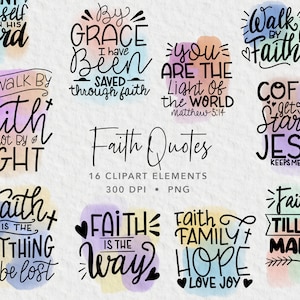 self
IN HIS
Word
By
GRACE
I have
Been
SAVED
through faith
you
ARE THE
Light Of
the WORLD
Matthew 5:14
Walk
By
Faith
WALK BY
Faith
NOT BY
SIGHT
Faith Quotes
16 CLIPART ELEMENTS
300 DPI • PNG
COF
gets
Star
JES
KEEPS ME
Faith
IS THE
THING
be lost
FAITH
IS THE
Way
Faith
FAMILY
HOPE
LOVE JOY
Fai
TILL
MA